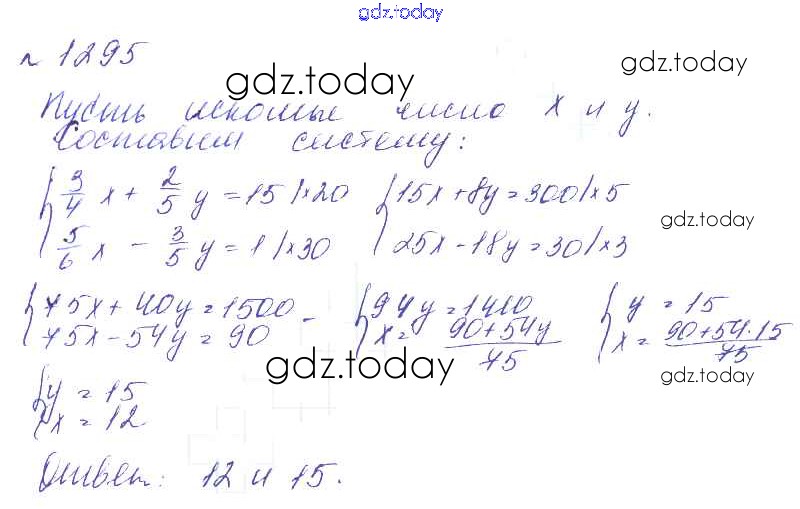 gdz.today
№ 1295
gdz.today
gdz.today
Пусть искомые число x и y.
Составим систему:
{ 3/4 x + 2/5 y = 15 |×20 { 15x + 8y = 300 |×5
{ 5/6 x - 3/5 y = 1 |×30 { 25x - 18y = 30 |×3
gdz.today
{ 75x + 40y = 1500 - { 94y = 1410 { y = 15
{ 75x - 54y = 90 { x = (90+54y)/75 { x = (90+54·15)/75
gdz.today
gdz.today
{ y = 15
{ x = 12
Ответ: 12 и 15.